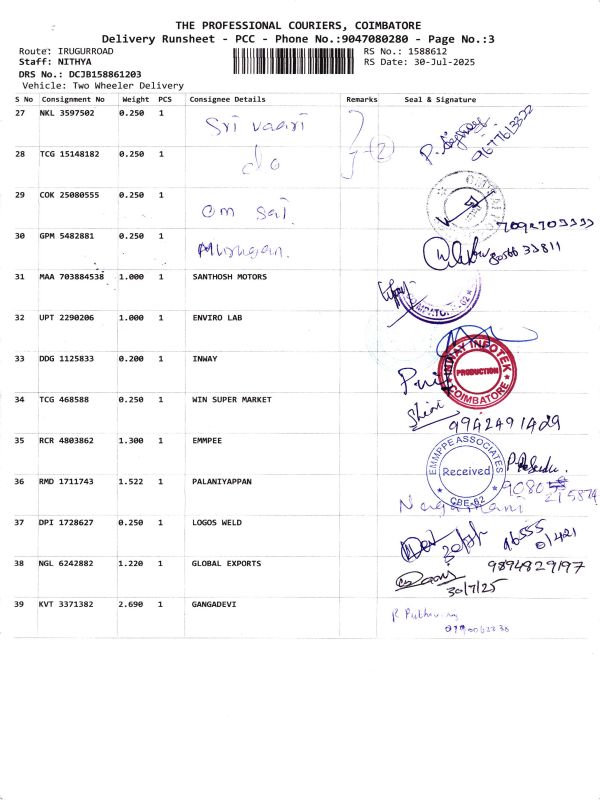 THE PROFESSIONAL COURIERS, COIMBATORE
Delivery Runsheet - PCC - Phone No.:9047080280 - Page No.:3
Route: IRUGURROAD RS No.: 1588612
Staff: NITHYA RS Date: 30-Jul-2025
DRS No.: DCJB158861203
Vehicle: Two Wheeler Delivery
S No Consignment No Weight PCS Consignee Details Remarks Seal & Signature
27 NKL 3597502 0.250 1 Sri vaari 9677613322
28 TCG 15148182 0.250 1 do 2
29 COK 25080555 0.250 1 om sai
30 GPM 5482881 0.250 1 Murugan. 8056633811
31 MAA 703884538 1.000 1 SANTHOSH MOTORS
32 UPT 2290206 1.000 1 ENVIRO LAB
33 DDG 1125833 0.200 1 INWAY INWAY INFOTEK PRODUCTION COIMBATORE
34 TCG 468588 0.250 1 WIN SUPER MARKET 9942491429
35 RCR 4803862 1.300 1 EMMPEE EMMPPE ASSOCIATES Received CBE-62
36 RMD 1711743 1.522 1 PALANIYAPPAN
37 DPI 1728627 0.250 1 LOGOS WELD
38 NGL 6242882 1.220 1 GLOBAL EXPORTS 9894829197
30/7/25
39 KVT 3371382 2.690 1 GANGADEVI